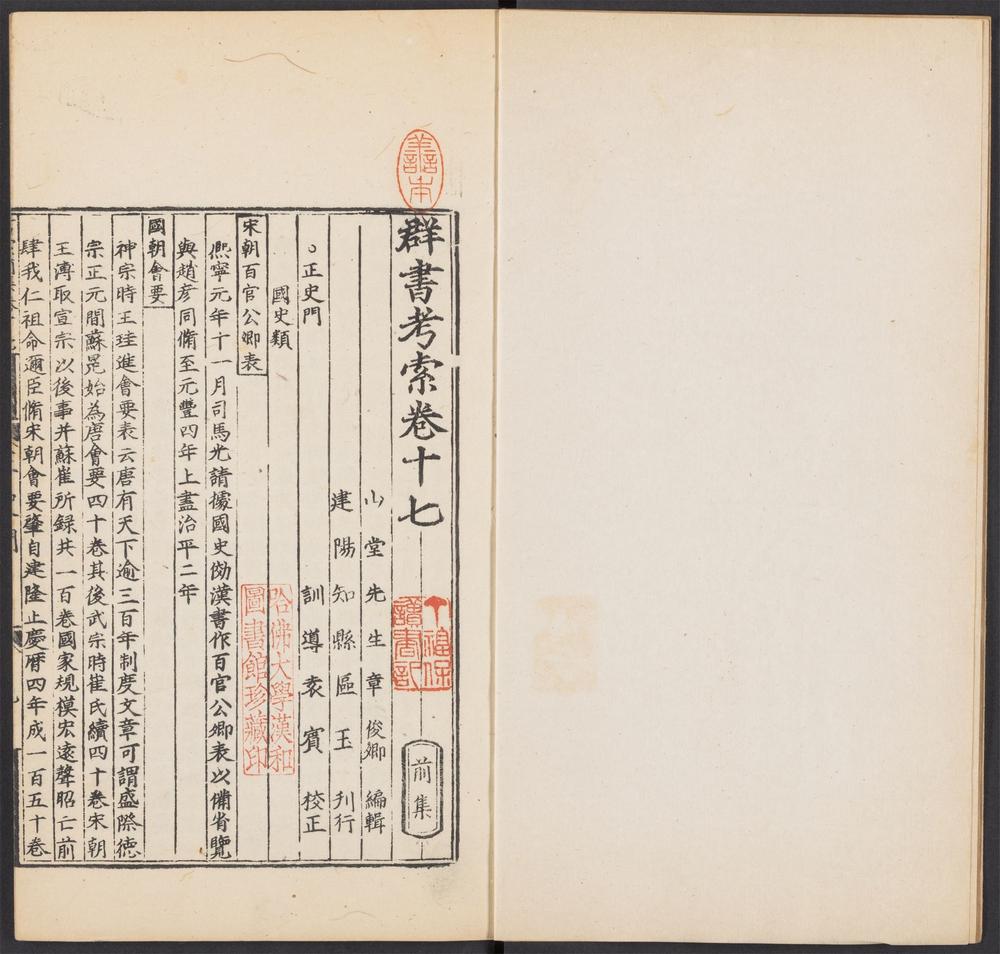 善本
群書考索卷十七
前集
山堂先生章俊卿編輯
建陽知縣區玉刋行
訓導袁賓校正
正史門
國史類
宋朝百官公卿表
熈寧元年十一月司馬光請據國史倣漢書作百官公卿表以備省覽
與趙彦同脩至元豐四年上盡治平二年
國朝會要
神宗時王珪進會要表云唐有天下逾三百年制度文章可謂盛際徳
宗正元間蘇冕始為唐會要四十卷其後武宗時崔氏續四十卷宋朝
王溥取宣宗以後事并蘇崔所録共一百卷國家規模宏逺聲昭亡前
肆我仁祖命邇臣脩宋朝會要肇自建隆止慶曆四年成一百五十卷
讀書記
哈佛大學漢和
圖書館珍藏印